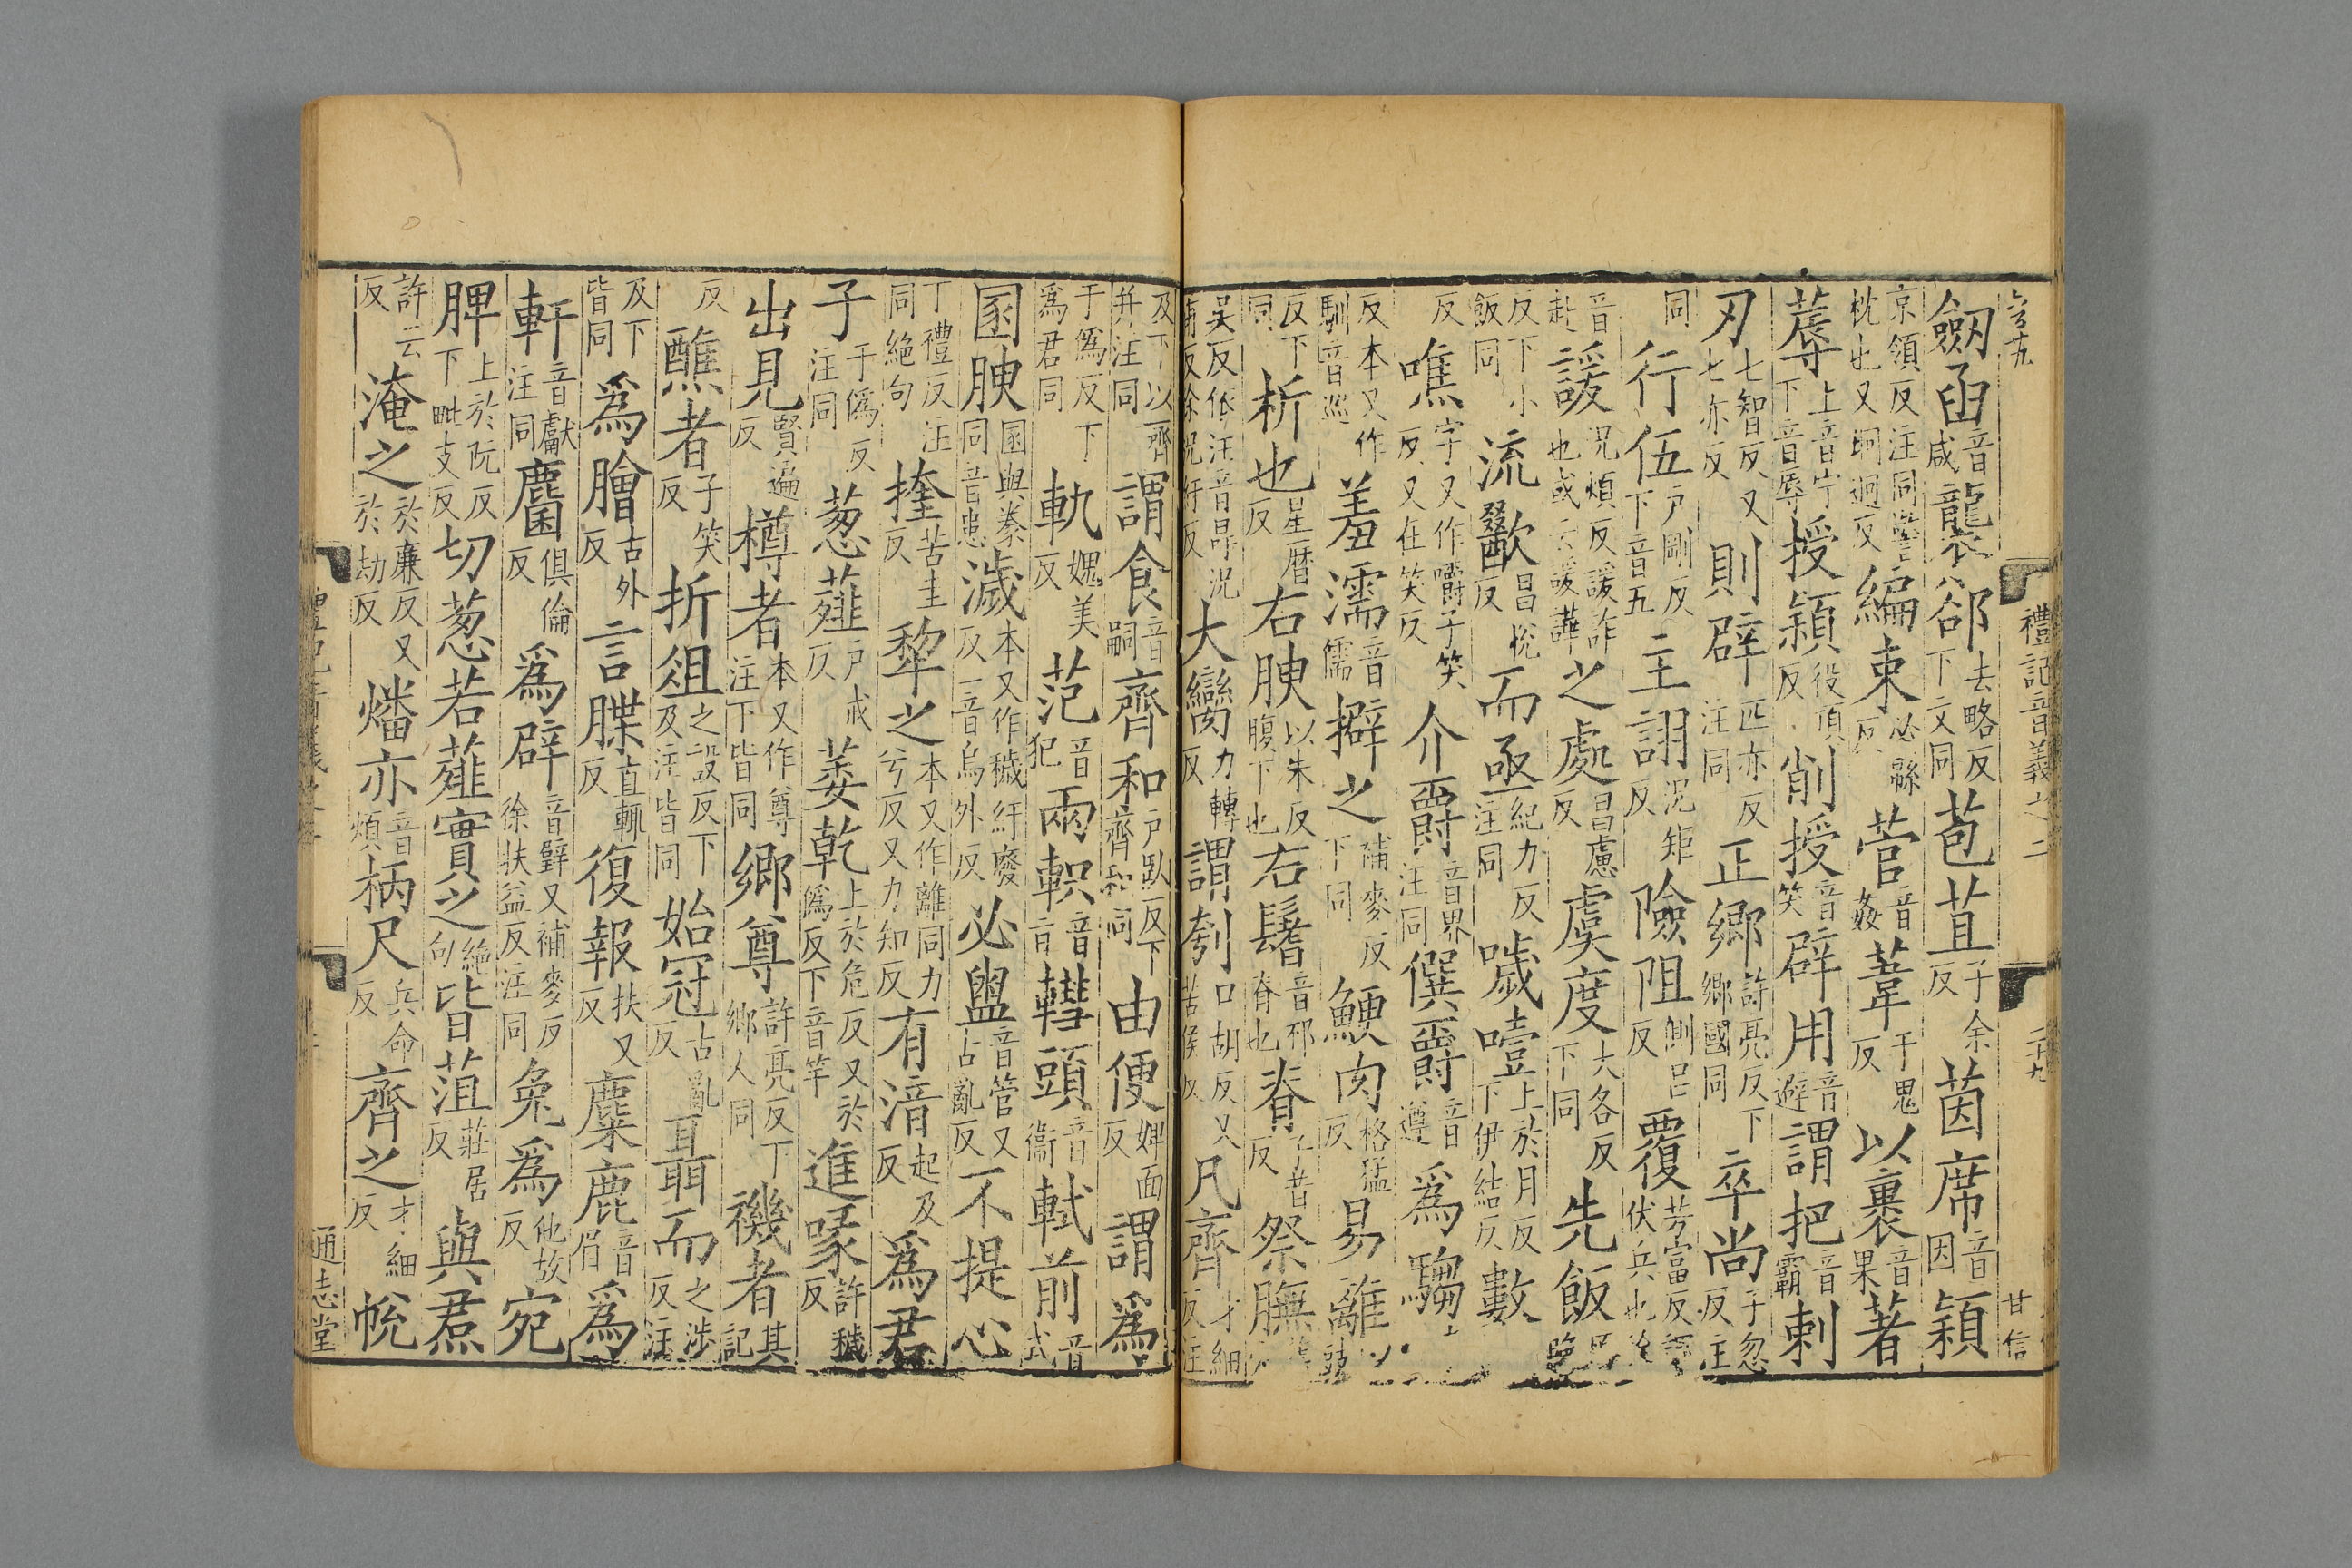 禮記音義之二 二十九 甘信
劒函音咸襲卻去略反下文同苞苴子余反茵席音因穎
京領反注同警枕也又炯迥反編束必緜反菅音姦葦于鬼反以裹音果著
蓐上音宁下音辱授穎役頂反削授音笑辟用音避謂把音霸刺
刃七智反又七亦反則辟匹亦反注同正鄉許亮反下鄉國同卒尚子忽反注
同行伍戶剛反下音五主詡況矩反險阻側呂反覆芳富反伏兵也
音赴諼況煩反諼詐也或云諼譁之處昌慮反虞度大各反下同先飯晚
反下小飯同流歠昌悅反而亟紀力反注同噦噎上於月反下伊結反數
反噍字又作嚼子笑反又在笑反介爵音界注同僎爵音遵爲騶
反本又作馴音巡羞濡音儒擗之補麥反下同鯁肉格猛反易離以豉
反下同析也星曆反右腴以朱反腹下也右鬐音祁脊也脊子昔反祭膴
吳反依注音冔況甫反徐況紆反大臠力轉反謂刳口胡反又苦侯反凡齊才細反注
及下以齊并注同謂食音嗣齊和戶臥反下齊和同由便婢面反謂爲
于僞反下爲君同軌媿美反范音犯兩軹音旨轊頭音衞軾前音式
圂腴圂與豢同音患濊本又作穢紆廢反一音烏外反必盥音管又古亂反不提心
丁禮反注同絕句挃苦圭反犂之本又作離同力兮反又力知反有湆起及反爲君
子于僞反注同葱薤戶戒反萎乾上於危反又於僞反下音竿進喙許穢反
出見賢遍反樽者本又作尊注下皆同鄉尊許亮反下鄉人同禨者其記
反醮者子笑反折俎之設反下及注皆同始冠古亂反聶而之涉反注
及下皆同爲膾古外反言牒直輒反復報扶又反麋鹿音眉爲
軒音獻注同麕俱倫反爲辟音擘又補麥反徐扶益反注同兔爲他故反宛
脾上於阮反下毗支反切葱若薤實之絕句皆菹莊居反與焄
許云反淹之於廉反又於劫反燔亦音煩柄尺兵命反齊之才細反帨
通志堂